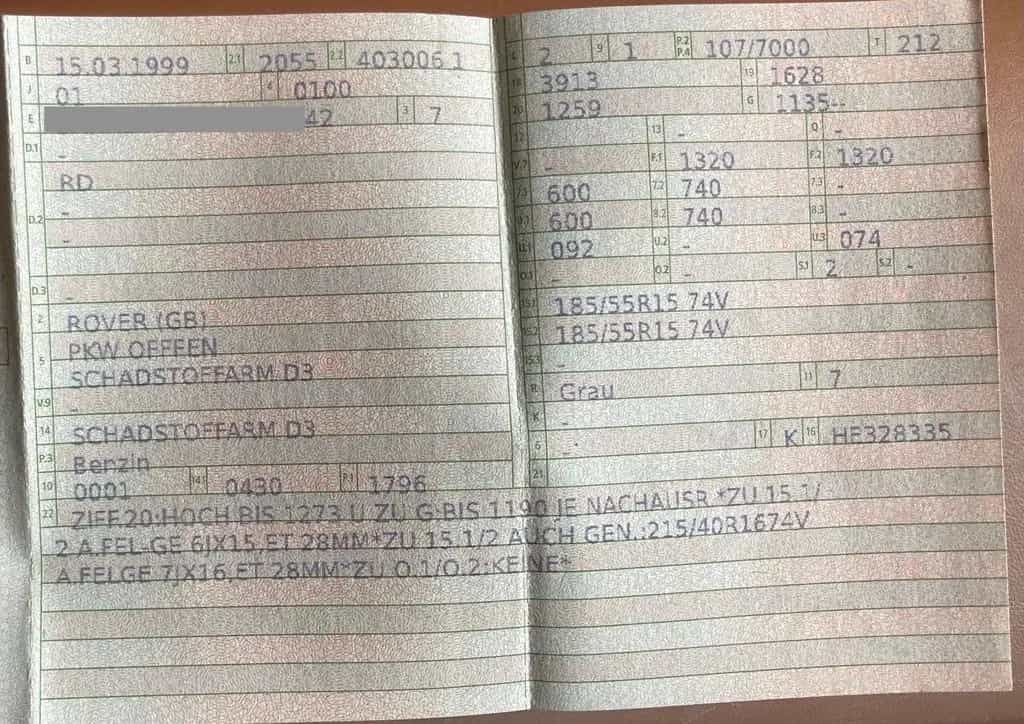 B 15.03.1999 2.1 2055 2.2 403006 1
J 01 4 0100
E 42 3 7
D.1 -
RD
D.2 -
-
D.3 -
2 ROVER (GB)
5 PKW OFFFEN
SCHADSTOFFARM D3
V.9 -
14 SCHADSTOFFARM D3
P.3 Benzin
10 0001 14.1 0430 P.1 1796
L 2 9 1 P.2 P.4 107/7000 T 212
18 3913 19 1628
20 1259 G 1135--
12 - 13 - Q -
V.7 - F.1 1320 F.2 1320
7.1 600 7.2 740 7.3 -
8.1 600 8.2 740 8.3 -
U.1 092 U.2 - U.3 074
O.1 - O.2 - S.1 2 S.2 -
15.1 185/55R15 74V
15.2 185/55R15 74V
15.3 -
R Grau 11 7
K -
6 - 17 K 16 HE328335
21
22 ZIFF.20:HOCH BIS 1273 U.ZU G:BIS 1190 JE NACHAUSR.*ZU 15.1/
2 A.FEL-GE 6JX15,ET 28MM*ZU 15.1/2 AUCH GEN.:215/40R1674V
A.FELGE 7JX16,ET 28MM*ZU O.1/O.2:KEINE*